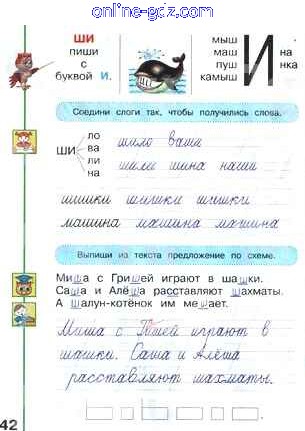 online-gdz.com
ШИ
пиши
с
буквой И.
мыш
маш
пуш
камыш
И
на
нка
Соедини слоги так, чтобы получились слова.
ШИ
ло
ва
ли
на
шило ваши
шили шина наши
шишки шишки шишки
машина машина машина
Выпиши из текста предложение по схеме.
Миша с Гришей играют в шашки.
Саша и Алёша расставляют шахматы.
А Шалун-котёнок им мешает.
Миша с Гришей играют в
шашки. Саша и Алёша
расставляют шахматы.
42